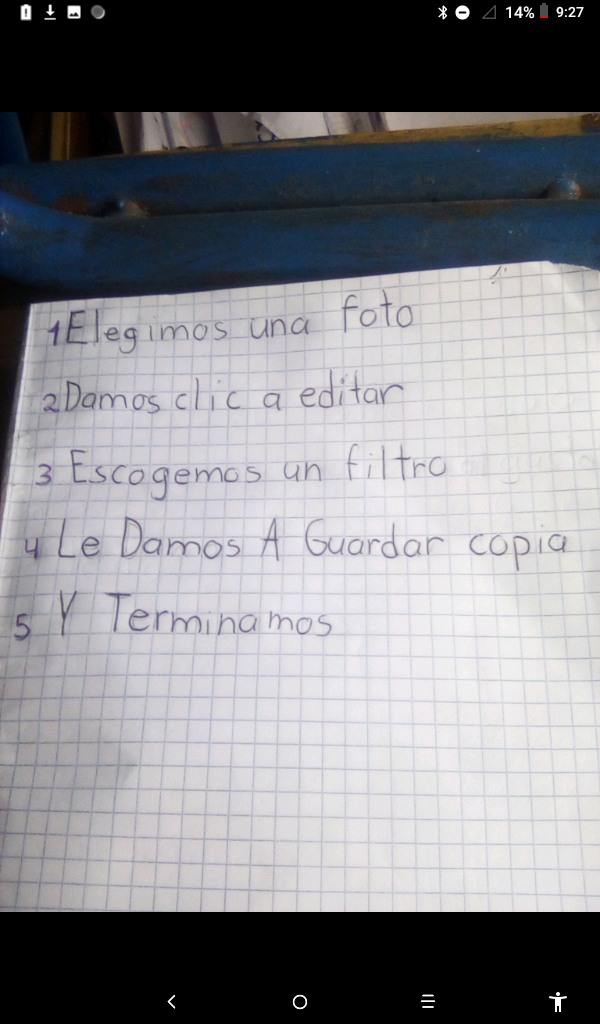 14% 9:27
1 Elegimos una foto
2 Damos clic a editar
3 Escogemos un filtro
4 Le Damos A Guardar copia
5 Y Terminamos